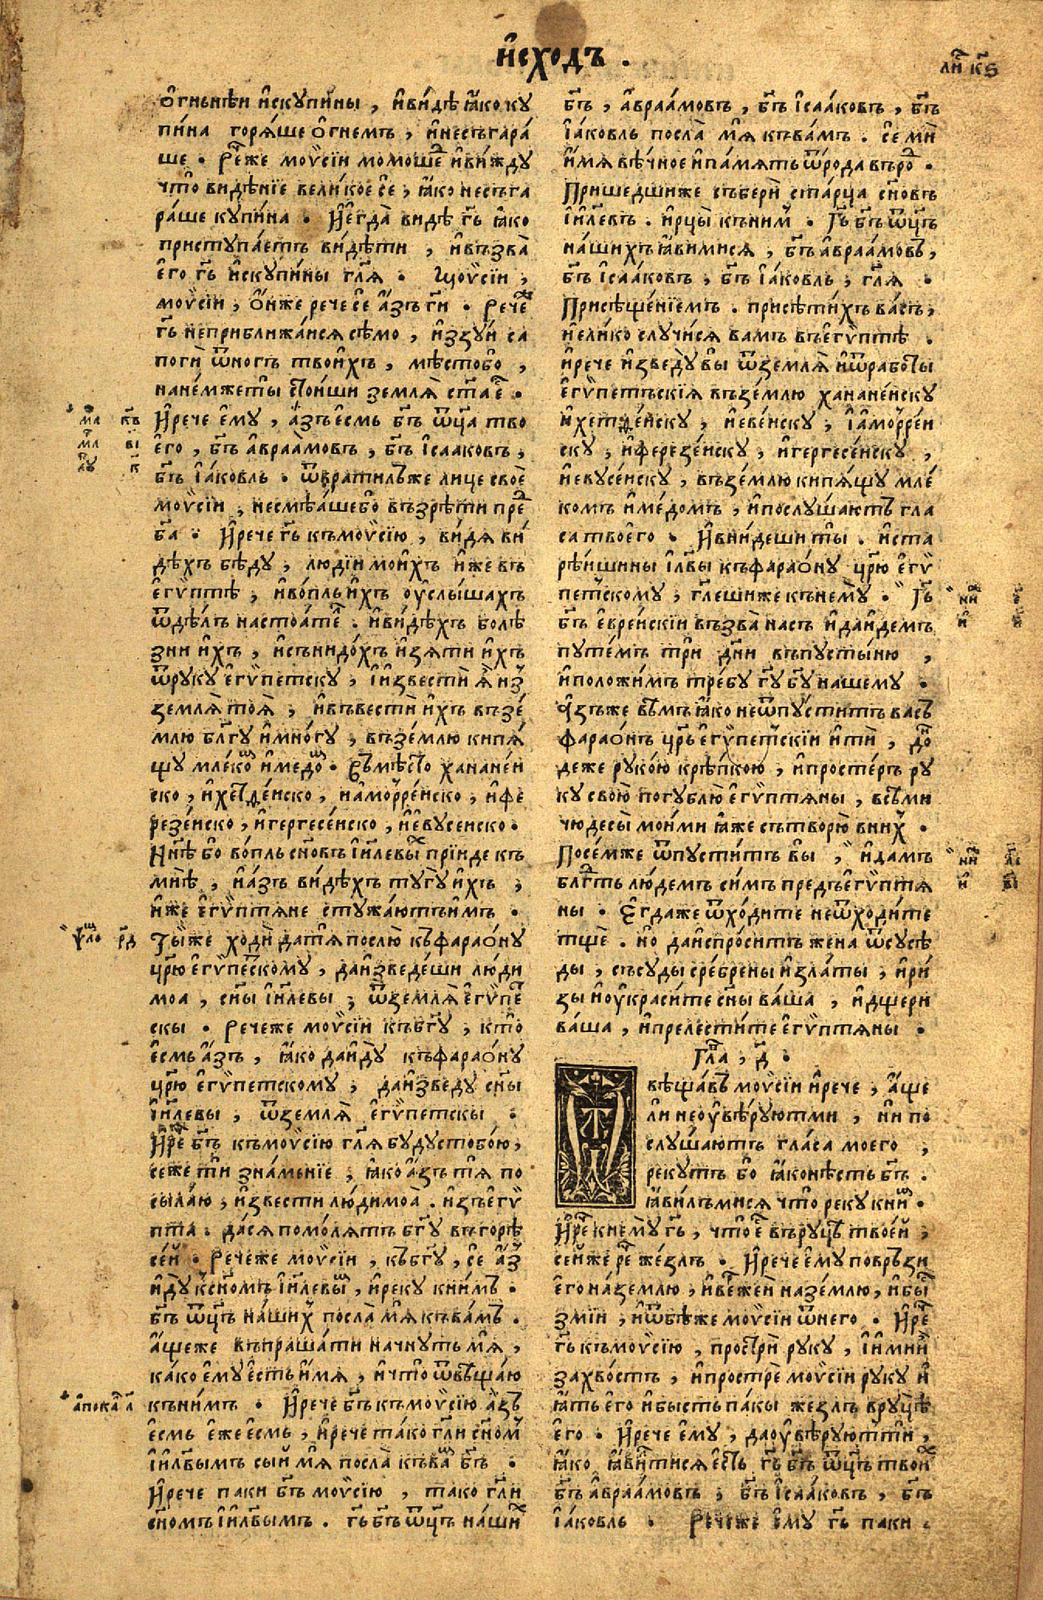 И҆схо́дъ .
ли҃ к҃ѕ
ѻ҆́гньнѣи и҆скупи́ны , и҆ви́дѣ ꙗ҆́ко ку
пи́на горѧ́ше ѻ҆гнемъ , и҆несъгара́
ше . Ре́че же моѷсі́и мимоше́д и҆ви́жду
что̀ видѣ́нїе вели́кое се , ꙗ҆́ко несъга
ра́ше купина̀ . И҆е҆гда̀ видѣ̀ гь҃ ꙗ҆́ко
приступа́етъ ви́дѣти , и҆възва̀
е҆го гь҃ и҆скупи́ны гл҃ѧ . Моѷсі́и ,
моѷсі́и , ѻ҆́нже рече се а҆́зъ ги҃ . Рече́же
гь҃ неприближа́исѧ сѣ́мо , и҆ззу́и са
погѝ ѿно́гъ твои́хъ , мѣ́сто бо ,
нане́мже ты̀ стои́ши землѧ̀ ст҃а е҆с .
И҆рече е҆му̀ , а҆́зъ е҆смь бг҃ъ ѿц҃а тво
его̀ , бг҃ъ а҆враа́мовъ , бг҃ъ і҆саа́ковъ ,
бг҃ъ і҆а́ковль . ѿврати́лъже лице своѐ
моѷсі́и , несмѣ́ашебо възрѣ́ти пред
ба҃ . И҆рече гь҃ къмоѷсі́ю , ви́дѧ ви́
дѣхъ бѣ́ду , люді́и мои́хъ и҆́же въ
е҆гѵ́птѣ , и҆во́пль и҆́хъ ѹ҆слы́шахъ
ѿдѣ́лъ наста́тел . и҆ви́дѣхъ болѣ́
зни и҆́хъ , и҆сънидо́хъ и҆зѧ́ти и҆́хъ
ѿруку̀ е҆гѵ́петску , и҆и҆звестѝ ѧ҆̀ из
землѧ̀ тоѧ̀ , и҆въвестѝ и҆́хъ въ зе́
млю бл҃гу и҆мно́гу , въ зе́млю кипѧ́
щу мле́ком и҆медом . Въмѣ́сто ханане́и
ско , и҆хетѳе́йско , и҆амо́ррейско , и҆фе
резе́йско , и҆гергесе́йско , и҆е҆вусейско .
Нн҃ѣ бо во́пль сн҃овъ і҆и҃левых прїи́де къ
мнѣ̀ , и҆а҆́зъ ви́дѣхъ тугу̀ и҆́хъ ,
и҆́же е҆гѵ́птѧне стужа́ютъ и҆́мъ .
Ты́же ходѝ датѧ̀ послю̀ къ фарао́ну
цр҃ю е҆гѵ́петскому , даи҆зведе́ши лю́ди
моа̀ , сн҃ы і҆и҃левы , ѿземлѧ̀ е҆гѵ́пет
скы . Рече́же моѷсі́и къбг҃у , кто̀
е҆́смь а҆́зъ , ꙗ҆́ко даи҆ду̀ къ фарао́ну
цр҃ю е҆гѵ́петскому , даи҆зведу̀ сн҃ы
і҆и҃левы , ѿземлѧ̀ е҆гѵ́петскы .
И҆рече бг҃ъ къмоѷсі́ю гл҃ѧ буду стобо́ю ,
се́же тѝ зна́менїе , ꙗ҆́ко а҆́зъ тѧ̀ по
сыла́ю , и҆звести лю́ди моа̀ . и҆зъ е҆гѵ́
пта . да́сѧ помо́лѧтъ бг҃у въгорѣ̀
се́й . Рече́же моѷсі́и , къбг҃у , се а҆́з
и҆ду̀ ксн҃омъ і҆и҃левым , и҆реку̀ кни́мъ .
бг҃ъ ѿц҃ъ на́ших посла̀ мѧ̀ къва́мъ .
а҆́щеже въпраша́ти начну́ть мѧ̀ ,
ка́ко е҆му̀ е҆́сть и҆́мѧ , и҆что̀ ѿвѣща́ю
къни́мъ . И҆рече бг҃ъ къмоѷсі́ю а҆́зъ
е҆смь е҆́же е҆́смь , и҆рече та́ко гл҃и сн҃ом
і҆и҃лвымъ сы́й мѧ̀ посла̀ къвам бг҃ъ .
И҆рече паки бг҃ъ моѷсі́ю , тако гл҃и
сн҃омъ і҆и҃лвымъ . гь҃ бг҃ъ ѿц҃ъ на́ших
бг҃ъ , а҆враа́мовъ , бг҃ъ і҆саа́ковъ , бг҃ъ
і҆а́ковль посла̀ мѧ̀ къва́мъ . се мѝ
и҆́мѧ вѣ́чное и҆па́мѧть ѿро́да въ род .
Прише́дшиже съберѝ ста́рца сн҃овъ
і҆и҃левъ . и҆рцы̀ къни́м . Гь҃ бг҃ъ ѿц҃ъ
на́шихъ ꙗ҆ви́мисѧ , бг҃ъ а҆враа́мовъ ,
бг҃ъ і҆саа́ковъ , бг҃ъ і҆а́ковль , гл҃ѧ .
Присѣще́нїемъ . присѣти́хъ ва́съ ,
и҆е҆ли́ко случи́сѧ вамъ въ е҆гѵ́птѣ .
и҆рече и҆зведу̀ вы̀ ѿземлѧ̀ и҆ѿрабо́ты
е҆гѵ́петъскїѧ въ зе́млю ханане́йску
и҆хетѳе́йску , и҆евейску , і҆амо́ррей
ску , и҆ферезе́йску , и҆гергесе́йску ,
и҆евусе́йску , въ зе́млю кипѧ́щу мле́
комъ и҆ме́домъ , и҆послу́шаютъ гла
са твоего . И҆вни́деши ты̀ . и҆ста
рѣ́йшины і҆и҃лвы къ фарао́ну цр҃ю е҆гѵ́
петскому , гл҃ешиже кънему̀ . Гь҃
бг҃ъ е҆вре́йскїи възва̀ насъ и҆да и҆де́мъ
путе́мъ трѝ дн҃и въпусты́ню ,
и҆положи́мъ тре́бу гу҃ бг҃у нашему .
А҆зъже вѣ́мъ ꙗ҆́ко неѿпу́стит васъ
фарао́нъ цр҃ь е҆гѵ́петскїи и҆тѝ , до́н
деже руко́ю крѣ́пкою , и҆просте́ръ ру
ку свою̀ погублю̀ е҆гѵ́птѧны , всѣ́ми
чюдесы̀ мои́ми ꙗ҆́же сътворю̀ вни́х .
Посе́мже ѿпусти́тъ вы̀ , и҆да́мъ
бл҃гть лю́демъ си́мъ предъ е҆гѵ́птѧ
ны . Е҆гда́же ѿхо́дите неѿхо́дите
тщѐ . но̀ даи҆спро́ситъ жена̀ ѿсусѣ́
ды , съсу́ды сре́брены и҆зла́ты , и҆ри́
зы и҆ѹ҆краси́те сн҃ы ва́ша , и҆дще́ри
ва́ша , и҆прелести́те е҆гѵ́птѧны .
Гла , д҃ .
вѣща́въ моѷсі́и и҆рече , а҆́ще
ли неѹ҆вѣ́руютъ ми , ни по
слу́шаютъ гла́са моего ,
реку́тъ бо ꙗ҆́ко нѣ́сть бг҃ъ .
ꙗ҆ви́лъмисѧ что̀ реку̀ кним .
И҆рече кнему̀ гь҃ , что̀ е҆с въ руцѣ̀ твое́й ,
се́йже рече же́злъ . И҆рече е҆му повръзи
его на́землю , и҆ве́рже и҆ на зе́млю , и҆бы́с
змі́и , и҆ѿбѣже моѷсі́и ѿнего . И҆рече
гь҃ къмоѷсі́ю , прострѝ руку , і҆и҆ми́и
за хво́стъ , и҆прострѐ моѷсі́и руку и҆
ꙗ҆́тъ е҆го и҆бысть па́кы же́злъ вруцѣ̀
его . И҆рече е҆му , даѹ҆вѣ́руютъ тѝ ,
ꙗ҆́ко ꙗ҆ви́тисѧ е҆сть гь҃ бг҃ъ ѿц҃ъ твоих
бг҃ъ а҆враа́мовъ , бг҃ъ і҆саа́ковъ , бг҃ъ
і҆а́ковль . Рече́же е҆му гь҃ паки .